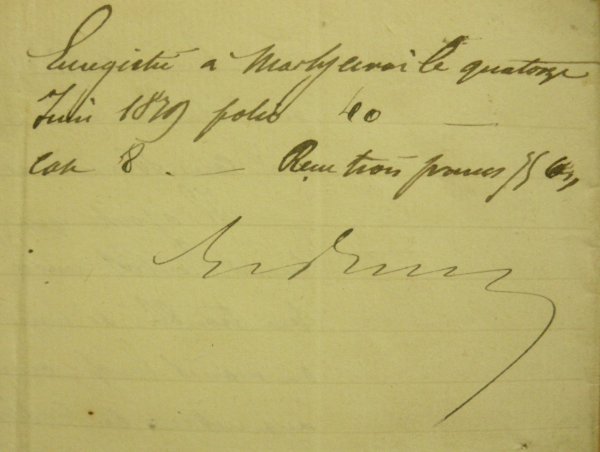 Enregistré à Marvejols le quatorze
Juin 1879 folio 40
Case 8. — Reçu trois francs 75 c